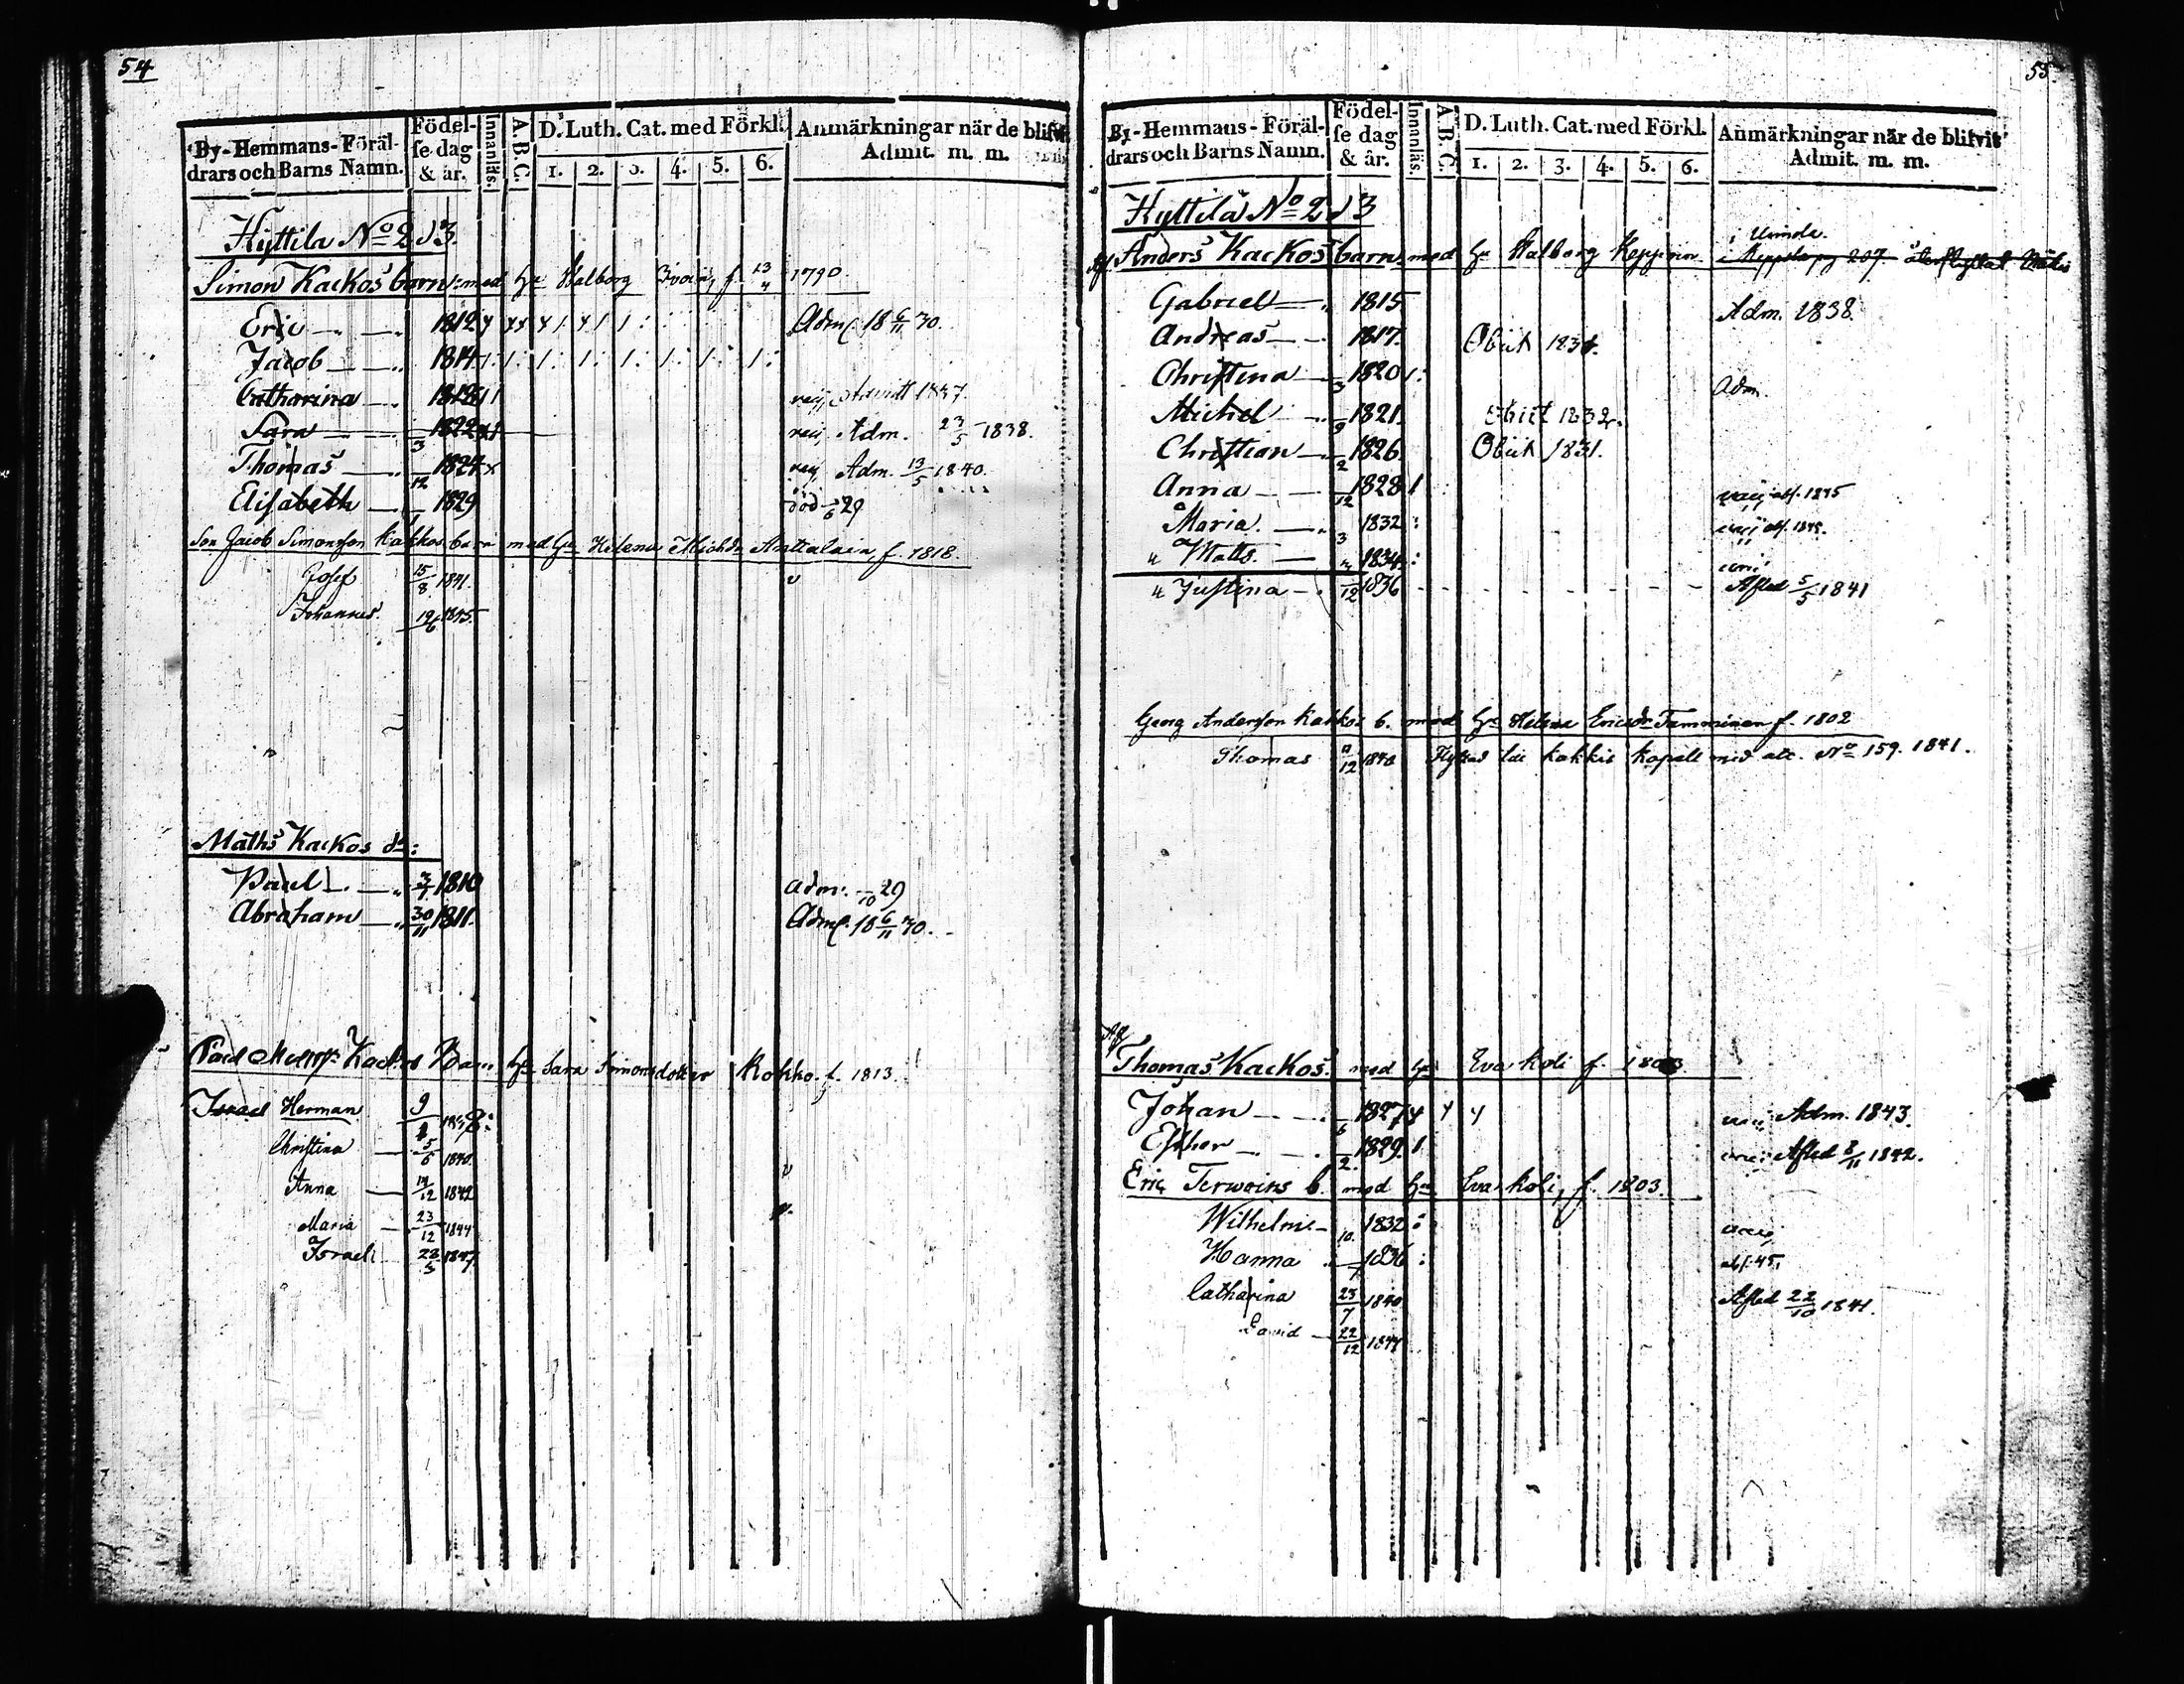 54
By-Hemmans-Föräl-drars och Barns Namn. Födel-se dag & år. Innanläs. A.B.C. D. Luth. Cat. med Förkl. 1. 2. 3. 4. 5. 6. Anmärkningar när de blifvit Admit. m. m.
Hyttila No 2 3.
Simon Kackos barn: med Hu Walborg f. 13/4 1790
Eric 1812 Adm. 18 6/11 30.
Jacob 1814
Catharina 1818 Admitt 1837.
Sara 1822 Adm. 23/5 1838.
Thomas /12 1824 Adm. 13/5 1840.
Elisabeth 1829 död /6 29
Son Jacob Simonsson Kakkos barn med Hu Helena Michdr Anttalain, f. 1818.
Josef 15/8 1841.
Johannes. 19/6 1845
Maths Kackos dr:
Paul 3/1 1810 adm. /10 29
Abraham 30/11 1811. Adm. 18 6/11 30.
Paul Kackos Barn Hu Sara Simonsdotter Kokko. f. 1813.
Israel Herman 9
Christina 5/6 1840.
Anna 14/12 1842
Maria 23/12 1844
Israel 23/3 1847
55
By-Hemmans-Föräl-drars och Barns Namn. Födel-se dag & år. Innanläs. A.B.C. D. Luth. Cat. med Förkl. 1. 2. 3. 4. 5. 6. Anmärkningar när de blifvit Admit. m. m.
Hyttila No 2 3
Anders Kackos barn med Hu Walborg Kepp 207
Gabriel 1815 Adm. 1838.
Andreas 1817. Obiit
Christina /3 1820 Adm.
Michel /9 1821. Obiit 1832.
Christian /2 1826. Obiit 1831.
Anna /12 1828 1845
Maria. /3 1832
Matts. 1834
Justina /12 1836 Afled 5/5 1841
Georg Andersson Kakkos b. med Hu Helena Ericsdr Tamminen f. 1802
Thomas /12 1840 Flyttad till Kakkis Kapell med att. No 159. 1841.
Thomas Kackos. med Hu Eva Koli f. 1803
Johan /6 1827 Adm. 1843.
Esther /2 1829. Afled /11 1842.
Eric Terwoins b. med Hu Eva Koli, f. 1803.
Wilhelm /10. 1832
Hanna 1836
Catharina 23/7 1840 Afled 22/10 1841.
David 22/12 1844